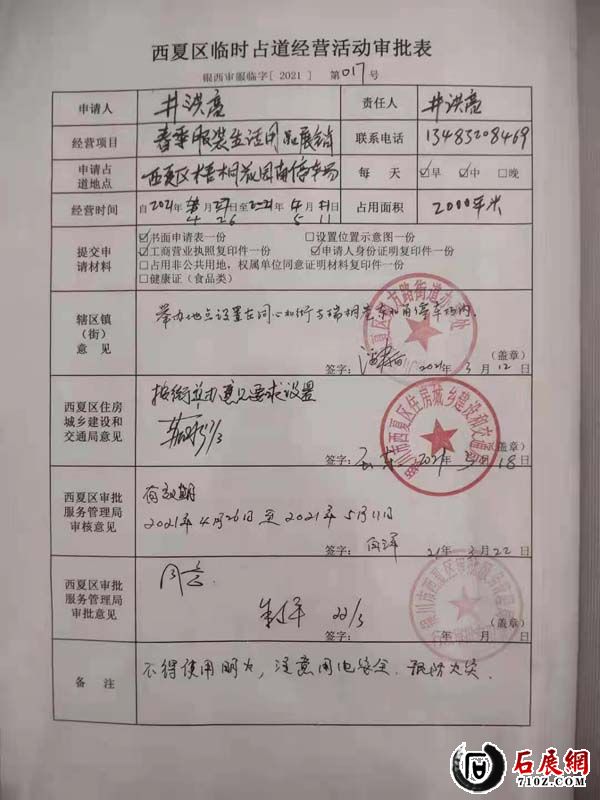 西夏区临时占道经营活动审批表
银西审服临字[ 2021 ] 第017号
申请人 井洪亮 责任人 井洪亮
经营项目 春季服装生活用品展销 联系电话 13483208469
申请占道地点 西夏区梧桐花园南停车场 每 天 ☑早 ☑中 □晚
经营时间 自2021年4月26日至2021年5月11日 占用面积 2000平米
提交申请材料
☑书面申请表一份 □设置位置示意图一份
☑工商营业执照复印件一份 ☑申请人身份证明复印件一份
□占用非公共用地，权属单位同意证明材料复印件一份
□健康证（食品类）
辖区镇（街）意见
举办地点设置在同心街与瑞桐巷东北角停车场内.
（盖章）
签字： 2021年3月12日
西夏区住房城乡建设和交通局意见
按街道办意见要求设置
（盖章）
签字： 2021年3月18日
银川市西夏区住房城乡建设和交通局
西夏区审批服务管理局审核意见
有效期
2021年4月26日至2021年5月11日
签字： 21年3月22日
西夏区审批服务管理局审批意见
同意.
22/3
（盖章）
签字： 年 月 日
银川市西夏区审批服务管理局
备 注
不得使用明火，注意用电安全，预防火灾.
石展網
710Z.COM